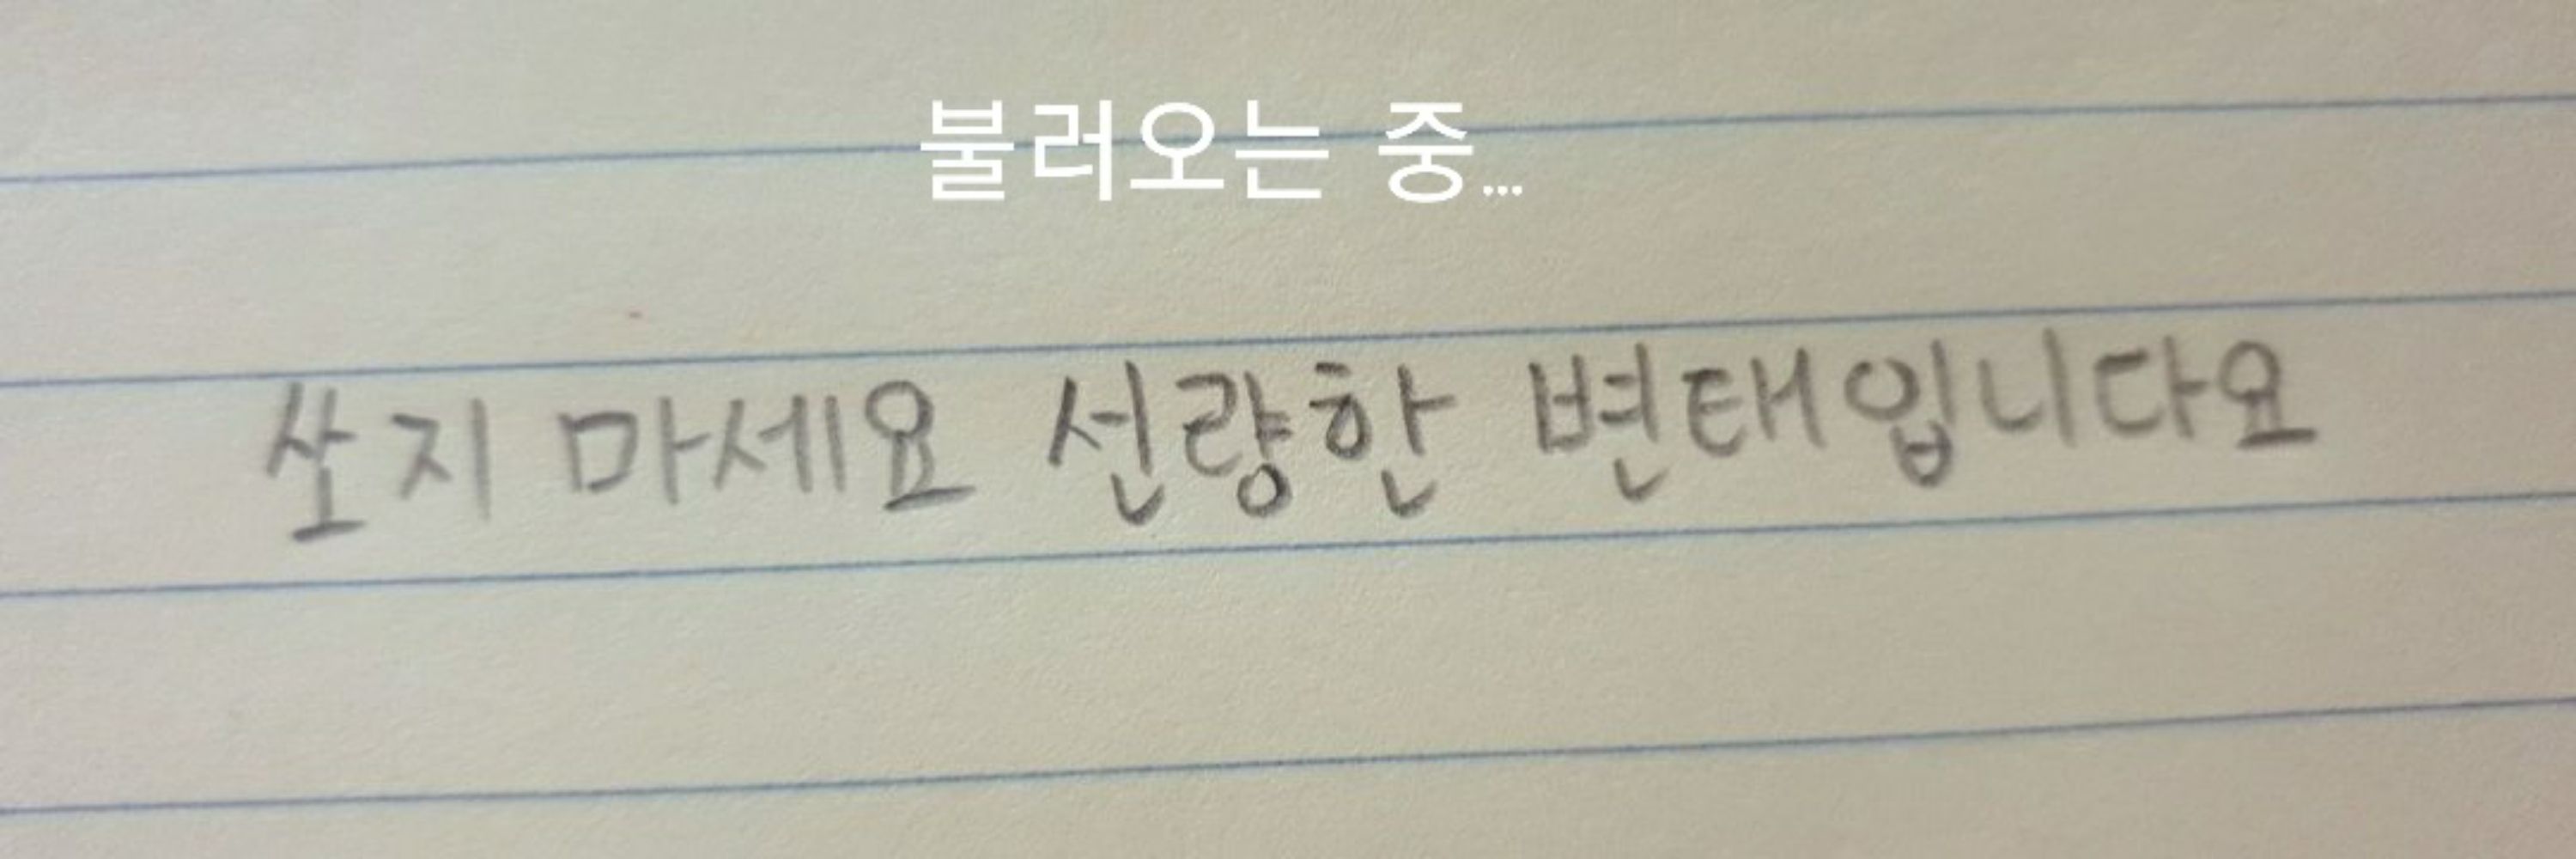 불러오는 중...
쏘지 마세요 선량한 변태입니다요